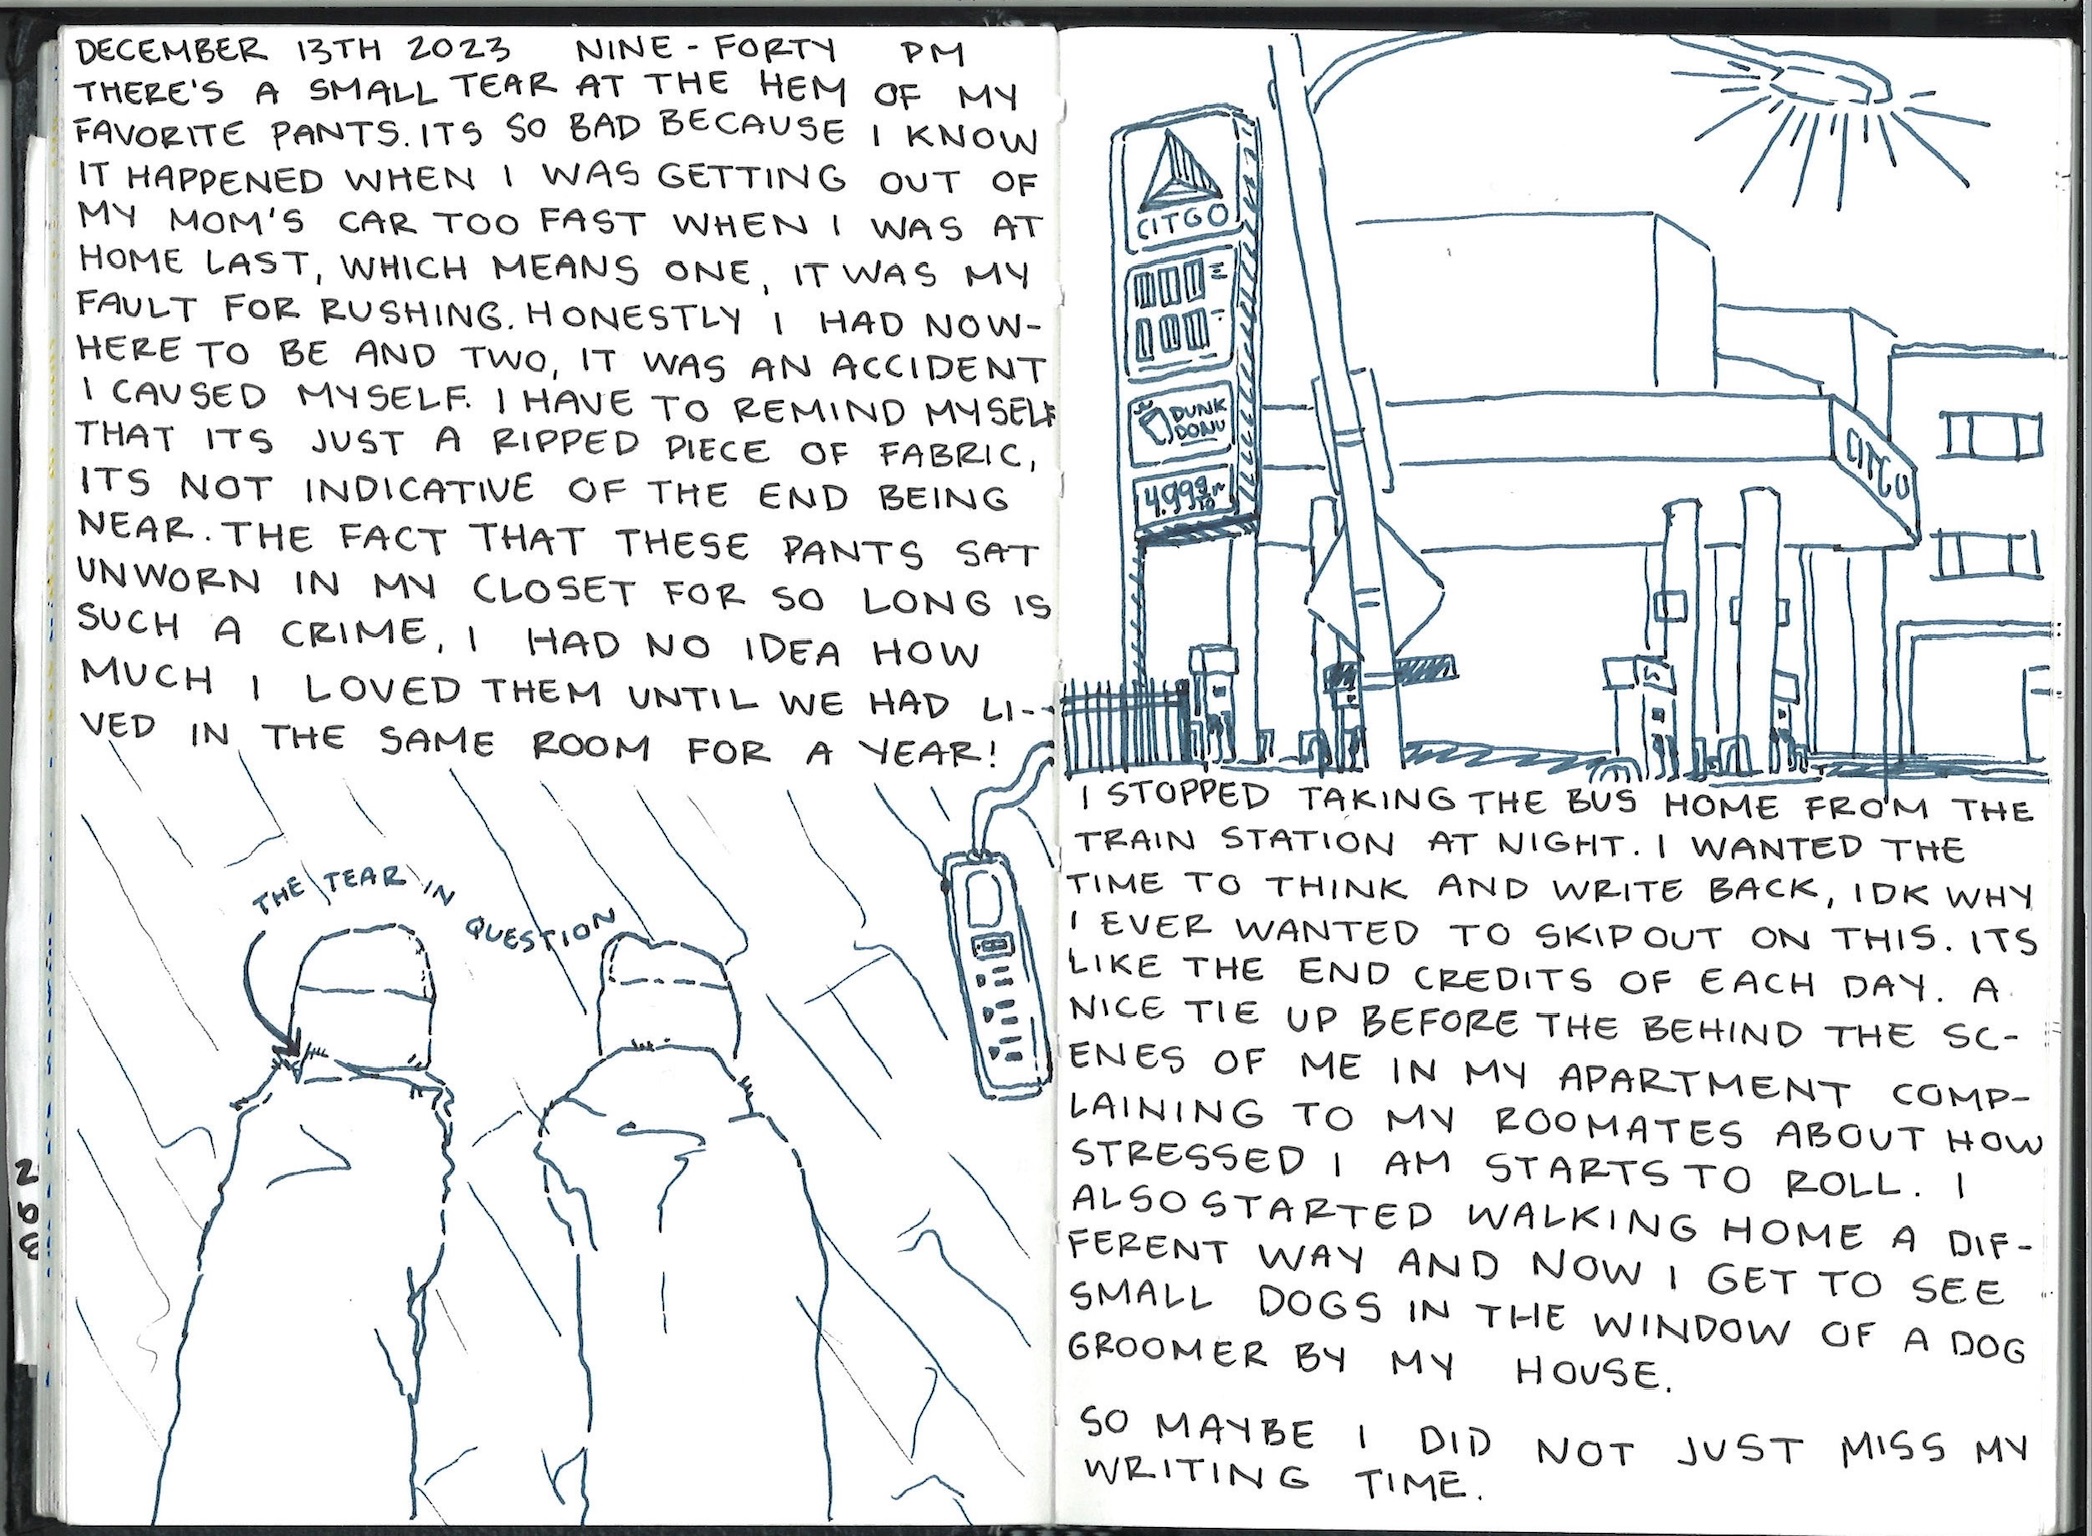 DECEMBER 13TH 2023 NINE-FORTY PM
THERE'S A SMALL TEAR AT THE HEM OF MY
FAVORITE PANTS. ITS SO BAD BECAUSE I KNOW
IT HAPPENED WHEN I WAS GETTING OUT OF
MY MOM'S CAR TOO FAST WHEN I WAS AT
HOME LAST, WHICH MEANS ONE, IT WAS MY
FAULT FOR RUSHING. HONESTLY I HAD NOW-
HERE TO BE AND TWO, IT WAS AN ACCIDENT
I CAUSED MYSELF. I HAVE TO REMIND MYSELF
THAT ITS JUST A RIPPED PIECE OF FABRIC,
ITS NOT INDICATIVE OF THE END BEING
NEAR. THE FACT THAT THESE PANTS SAT
UNWORN IN MY CLOSET FOR SO LONG IS
SUCH A CRIME, I HAD NO IDEA HOW
MUCH I LOVED THEM UNTIL WE HAD LI-
VED IN THE SAME ROOM FOR A YEAR!
THE TEAR IN
QUESTION
CITGO
DUNK
DONU
4.99
CITGO
I STOPPED TAKING THE BUS HOME FROM THE
TRAIN STATION AT NIGHT. I WANTED THE
TIME TO THINK AND WRITE BACK, IDK WHY
I EVER WANTED TO SKIP OUT ON THIS. ITS
LIKE THE END CREDITS OF EACH DAY. A
NICE TIE UP BEFORE THE BEHIND THE SC-
ENES OF ME IN MY APARTMENT COMP-
LAINING TO MY ROOMATES ABOUT HOW
STRESSED I AM STARTS TO ROLL. I
ALSO STARTED WALKING HOME A DIF-
FERENT WAY AND NOW I GET TO SEE
SMALL DOGS IN THE WINDOW OF A DOG
GROOMER BY MY HOUSE.
SO MAYBE I DID NOT JUST MISS MY
WRITING TIME.